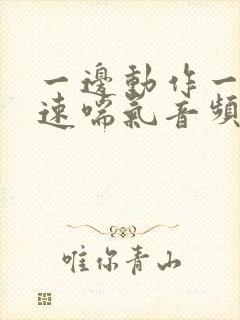 一邊動作一
速喘氣音頻
唯你青山